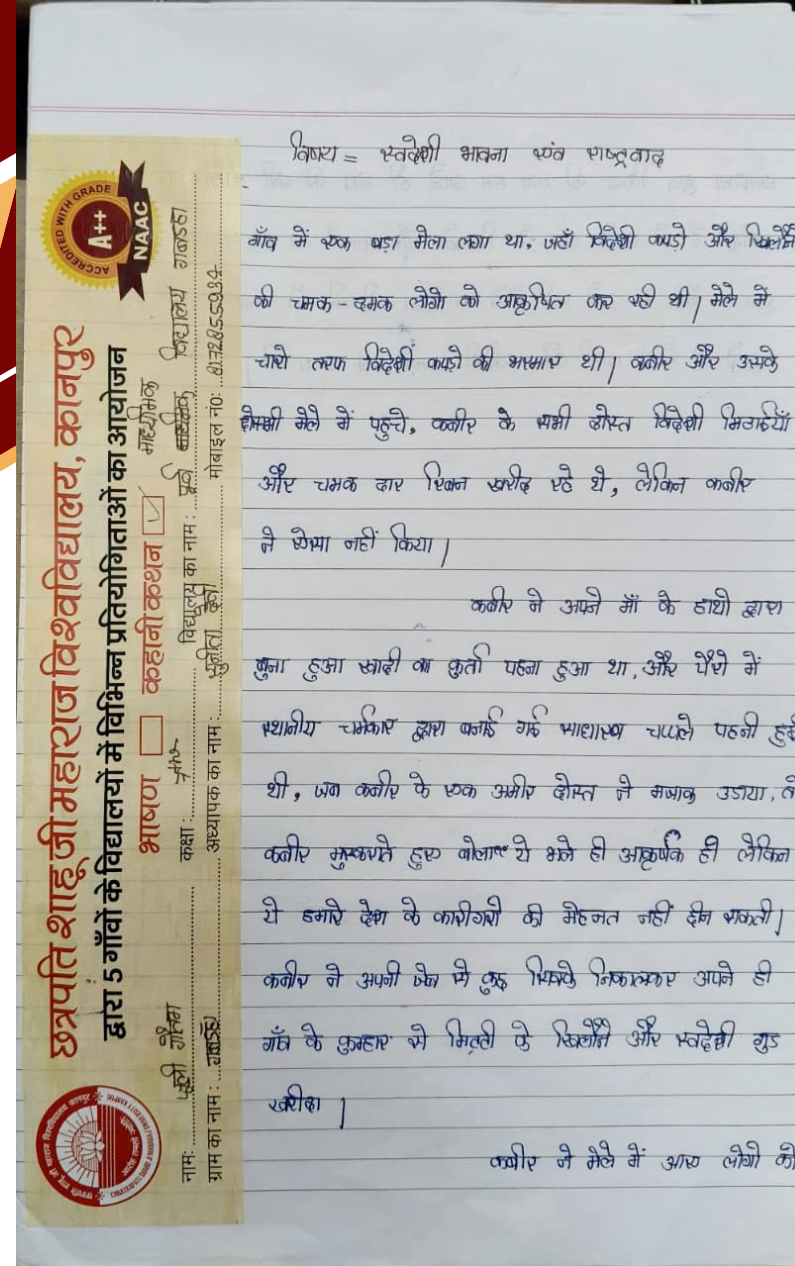 छत्रपति शाहू जी महाराज विश्वविद्यालय, कानपुर
द्वारा 5 गाँवों के विद्यालयों में विभिन्न प्रतियोगिताओं का आयोजन
भाषण कहानी कथन
माध्यमिक
नाम: गौतम कक्षा: विद्यालय का नाम: पूर्व विद्यालय गबड़हा
ग्राम का नाम: गबड़हा अध्यापक का नाम: सुनीता देवी मोबाइल नं0:
ACCREDITED WITH GRADE
A++
NAAC
विषय = स्वदेशी भावना एंव राष्ट्रवाद
गाँव में एक बड़ा मेला लगा था, जहाँ विदेशी कपड़ो और खिलौने
की चमक - दमक लोगो को आकृषित कर रही थी|मेले में
चारो तरफ विदेशी कपड़ो की भरमार थी| कबीर और उसके
मेले में पहुचे, कबीर के सभी दोस्त विदेशी मिठाईयाँ
और चमक दार रिबन खरीद रहे थे, लेकिन कबीर
ने ऐसा नहीं किया|
कबीर ने अपने माँ के हाथो द्वारा
बुना हुआ खादी का कुर्ता पहना हुआ था, और पैरो में
स्थानीय चर्मकार द्वारा बनाई गई साधारण चप्पले पहनी हुई
थी, जब कबीर के एक अमीर दोस्त ने मजाक उडाया, तो
कबीर मुस्कराते हुए बोला" ये भले ही आकृर्षक हो लेकिन
ये हमारे देश के कारीगरो की मेहनत नहीं छीन सकती|
कबीर ने अपनी जेब से कुछ सिक्के निकालकर अपने ही
गाँव के कुम्हार से मिट्टी के खिलौने और स्वदेशी गुड
खरीदा |
कबीर ने मेले में आए लोगो को